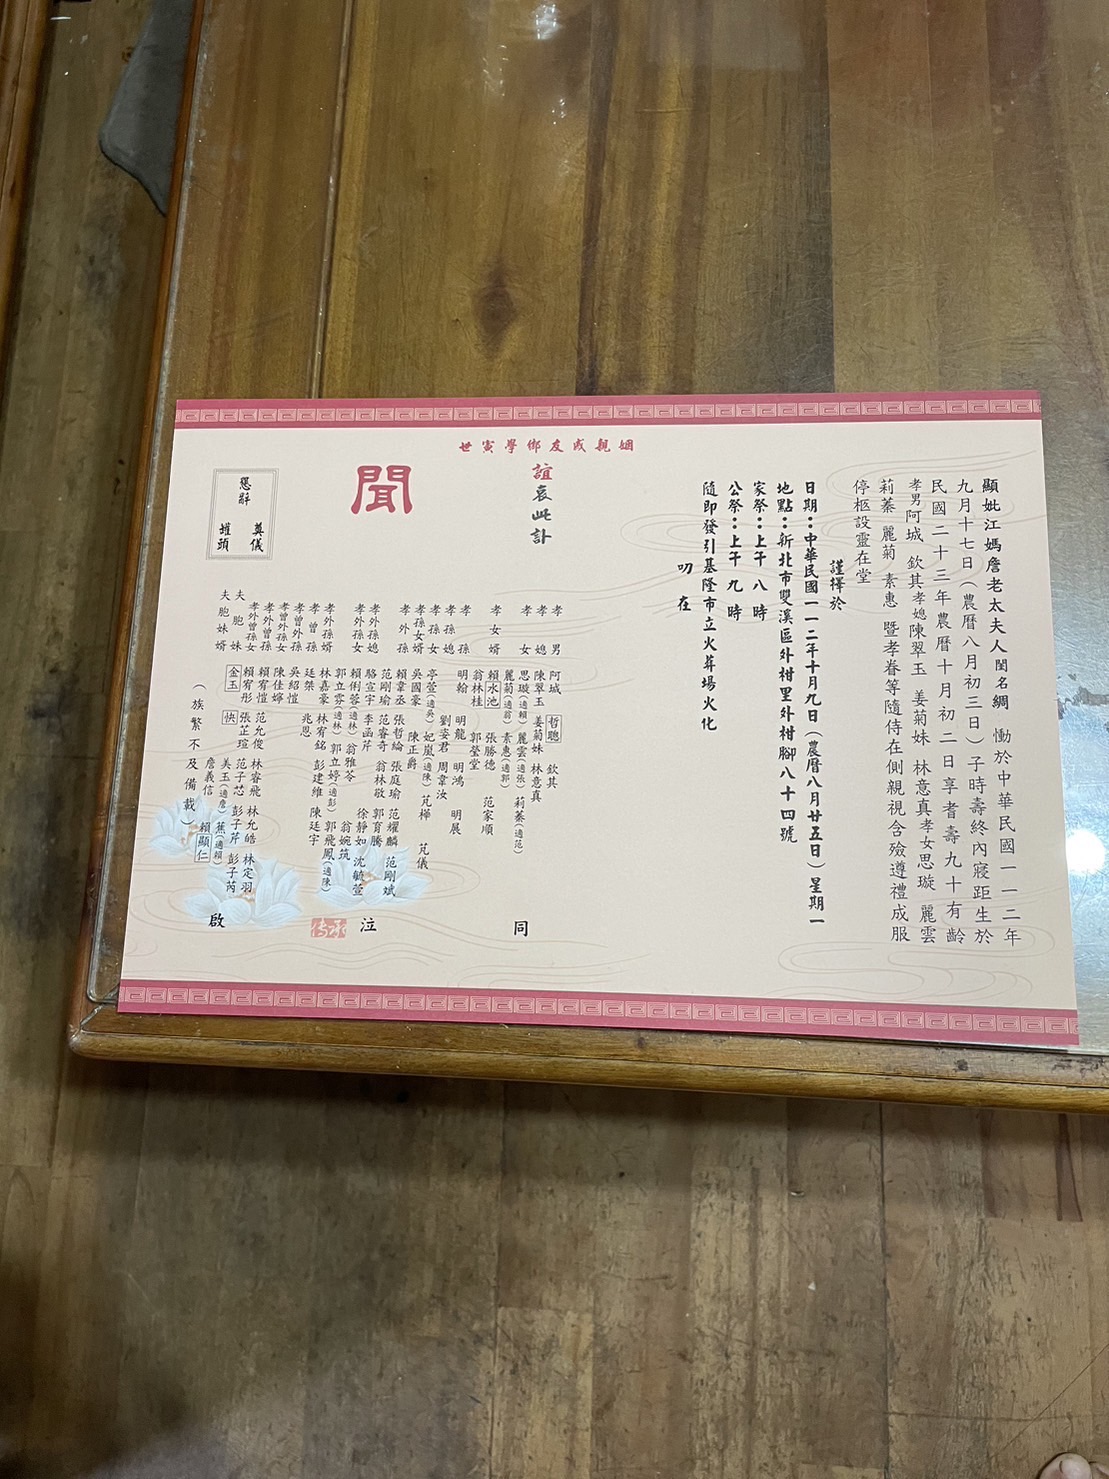 顯妣江媽詹老太夫人閨名綢 慟於中華民國一一二年
九月十七日（農曆八月初三日）子時壽終內寢距生於
民國二十三年農曆十月初二日享耆壽九十有齡
孝男阿城 欽其孝媳陳翠玉 姜菊妹 林意真孝女思璇 麗雲
莉蓁 麗菊 素惠 暨孝眷等隨侍在側親視含殮遵禮成服
停柩設靈在堂
謹擇於
日期：中華民國一一二年十月九日（農曆八月廿五日）星期一
地點：新北市雙溪區外柑里外柑腳八十四號
家祭：上午 八 時
公祭：上午 九 時
隨即發引基隆市立火葬場火化
叨 在
姻親戚友鄉學寅世
誼哀此訃
聞
孝男 阿城 哲聰 欽其
孝媳 陳翠玉 姜菊妹 林意真
孝女 思璇（適賴） 麗雲（適張） 莉蓁（適范）
麗菊（適翁） 素惠（適郭）
孝女婿 賴水池 張勝德 范家順
翁林桂 郭瑩堂
孝孫 明翰 明龍 明鴻 明展
孝孫媳 劉姿君 周韋汝
孝孫女 亭萱（適吳） 妃嵐（適陳） 芃樺 芃儀
孝孫女婿 吳國豪 陳正爵
孝外孫 賴韋丞 張哲綸 張庭瑜 范耀麟 范剛斌
范剛瑜 范睿奇 翁林敬 郭育騰
孝外孫媳 駱宣宇 李函芹 徐靜如 沈毓萱
孝外孫女 賴俐蓉（適林） 翁雅苓 翁婉筑
郭立雰（適林） 郭立婷（適彭） 郭飛鳳（適陳）
孝外孫婿 林嘉豪 林宥銘 彭建維 陳廷宇
孝曾孫 廷桀 兆恩
孝曾外孫 吳紹愷
孝曾外孫女 陳佳嬣
孝外曾孫 賴宥愷 范允俊 林睿飛 林允皓 林定羽
孝外曾孫女 賴宥彤 張芷瑄 范子芯 彭子芹 彭子芮
夫胞妹 金玉 快 美玉（適詹） 蕉（適賴）
夫胞妹婿 詹義信 賴顯仁
（族繁不及備載）
同
泣
啟
懇辭 奠儀
罐頭
傳承